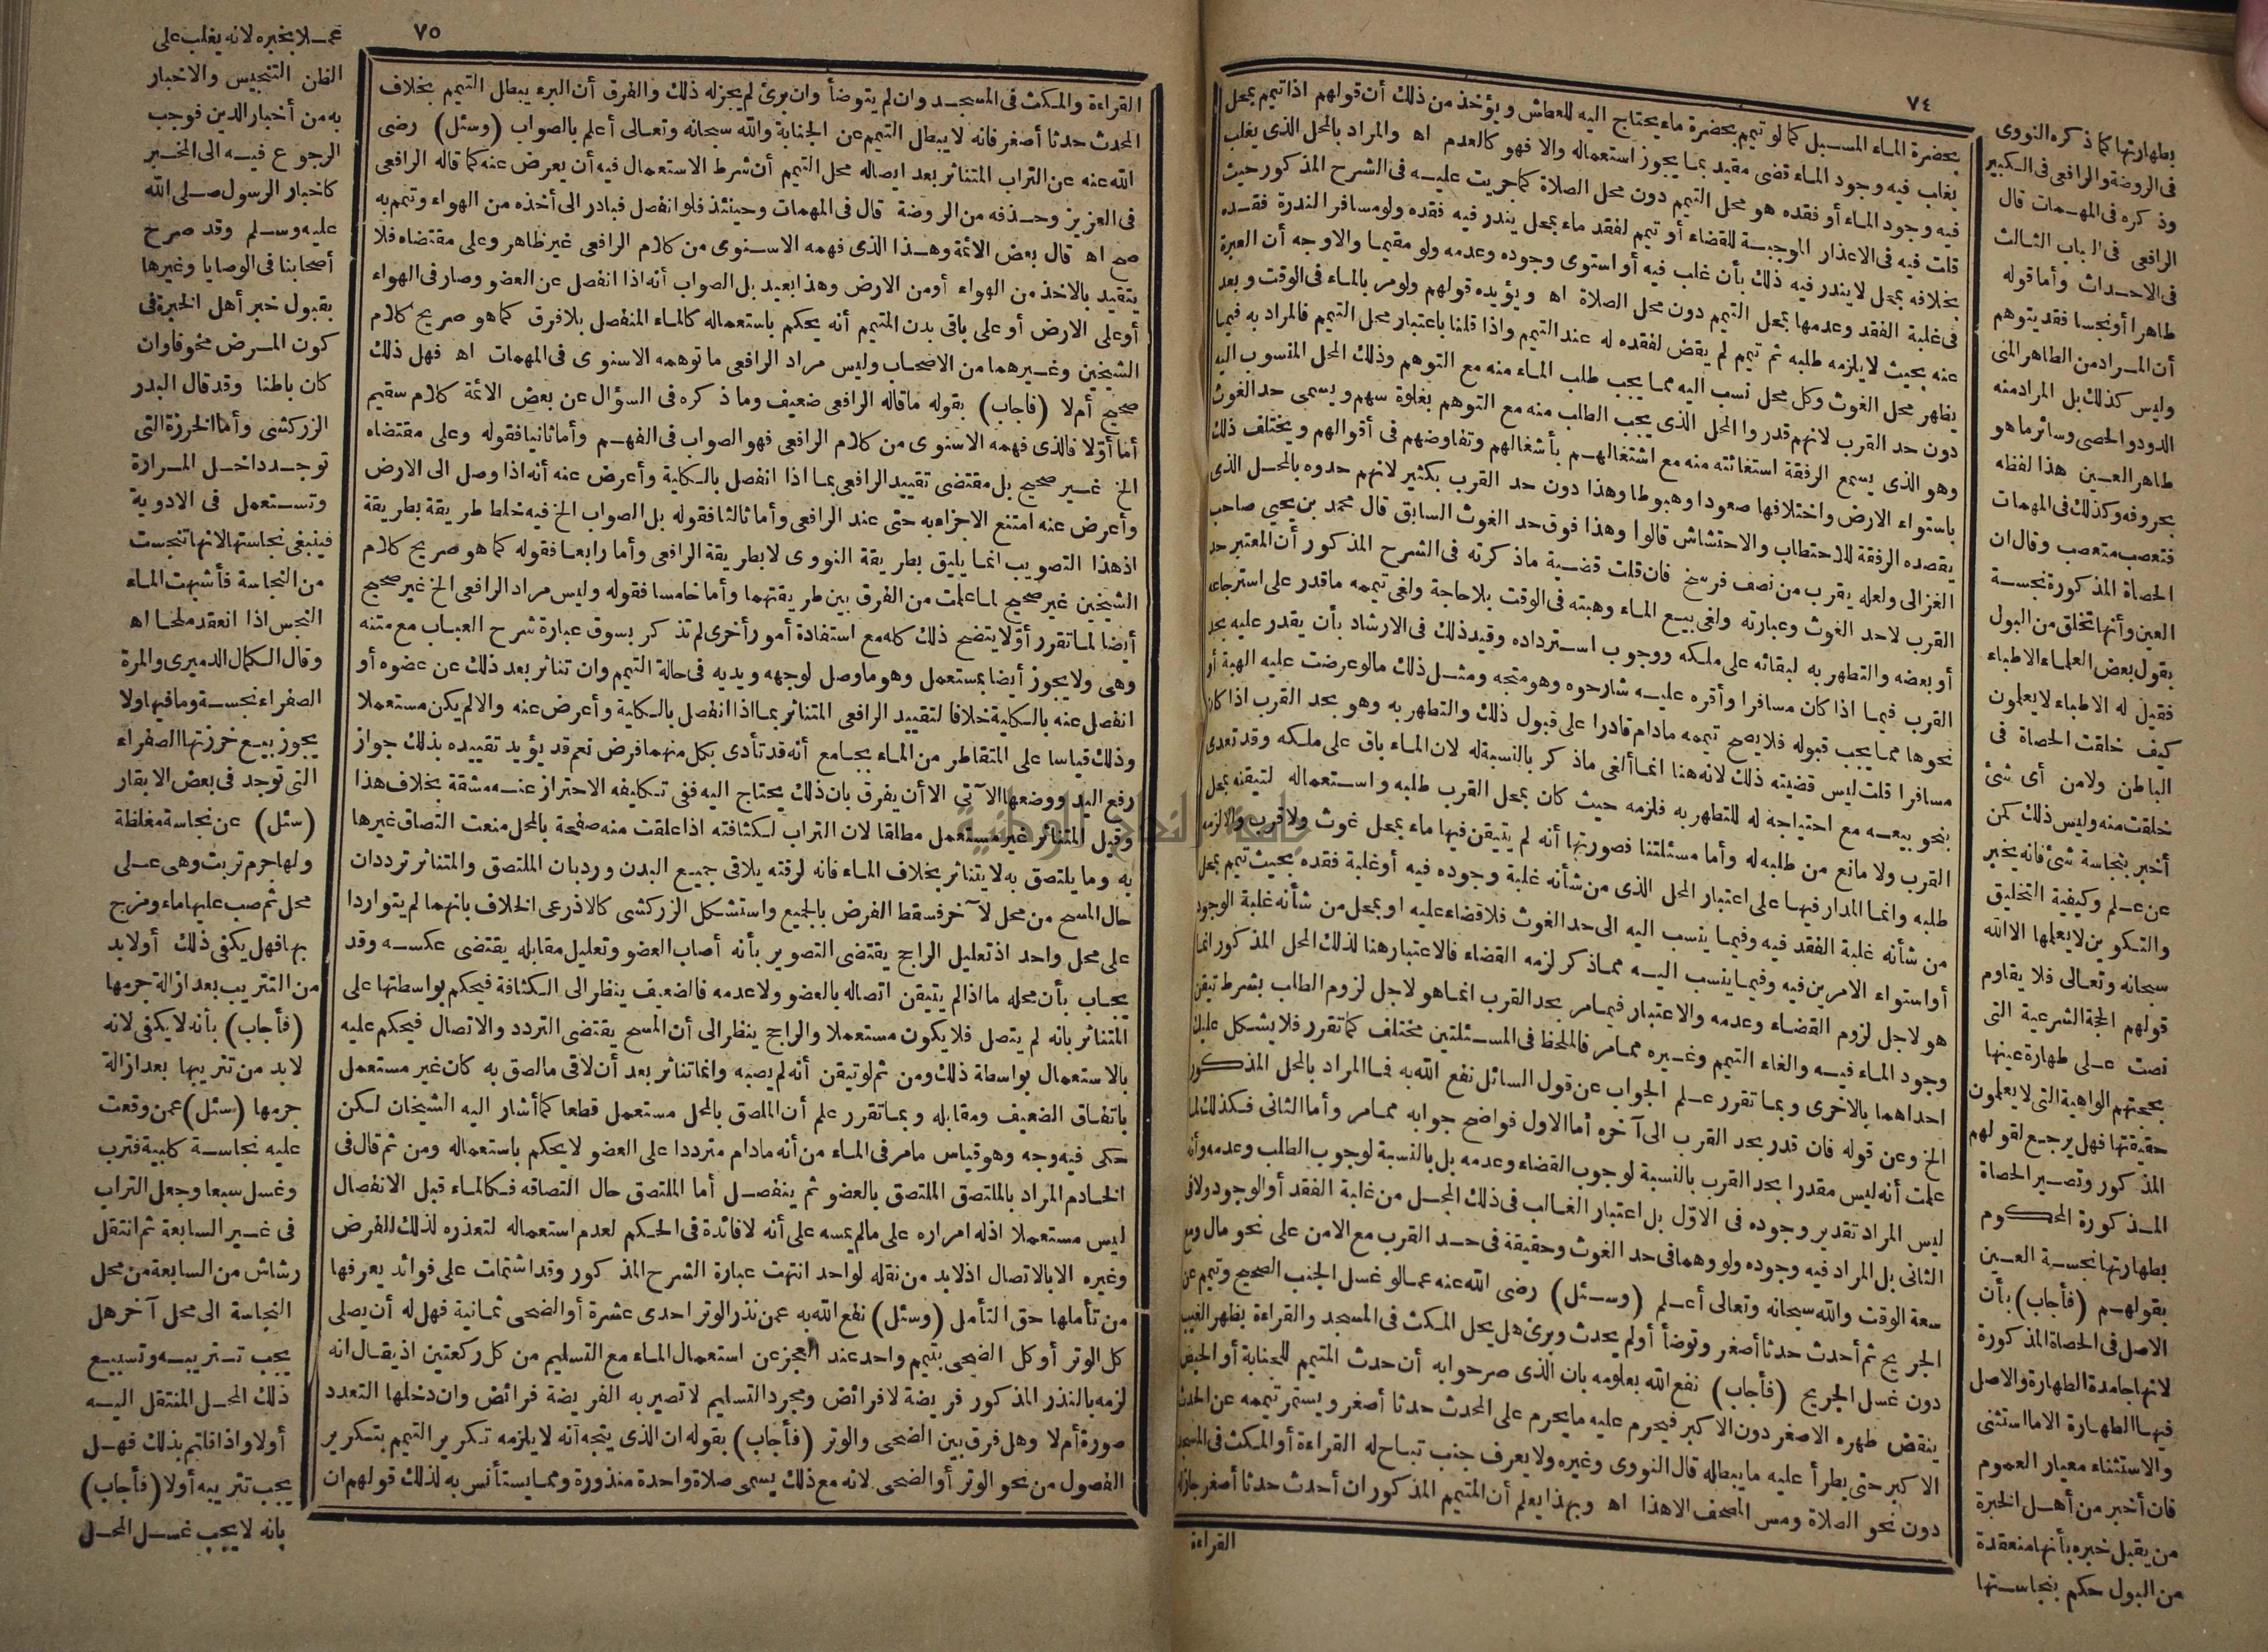 ٧٤
بحضرة الماء المسبل كما لو تيمم بحضرة ماء يحتاج اليه للعطاش ويؤخذ من ذلك أن قولهم اذا تيمم بمحل
يغلب فيه وجود الماء قضى مقيد بما يجوز استعماله والا فهو كالعدم اه والمراد بالمحل الذى يغلب
فيه وجود الماء أو فقده هو محل التيمم دون محل الصلاة كما جريت عليه فى الشرح المذكور حيث
قلت فيه فى الاعذار الموجبة للقضاء أو تيمم لفقد ماء بمحل يندر فيه فقده ولو مسافر الندرة فقده
بخلافه بمحل لا يندر فيه ذلك بأن غلب فيه أو استوى وجوده وعدمه ولو مقيما والاوجه أن العبرة
فى غلبة الفقد وعدمها بمحل التيمم دون محل الصلاة اه ويؤيده قولهم ولو مر بالماء فى الوقت وبعد
عنه بحيث لا يلزمه طلبه ثم تيمم لم يقض لفقده له عند التيمم واذا قلنا باعتبار محل التيمم فالمراد به فيما
يظهر محل الغوث وكل محل نسب اليه مما يجب طلب الماء منه مع التوهم وذلك المحل المنسوب اليه
دون حد القرب لانهم قدروا المحل الذى يجب الطلب منه مع التوهم بغلوة سهم ويسمى حد الغوث
وهو الذى يسمع الرفقة استغاثته منه مع اشتغالهم بأشغالهم وتفاوضهم فى أقوالهم ويختلف ذلك
باستواء الارض واختلافها صعودا وهبوطا وهذا دون حد القرب بكثير لانهم حدوه بالمحل الذى
يقصده الرفقة للاحتطاب والاحتشاش قالوا وهذا فوق حد الغوث السابق قال محمد بن يحيى صاحب
الغزالى ولعله يقرب من نصف فرسخ فان قلت قضية ماذكرته فى الشرح المذكور أن المعتبر حد
القرب لاحد الغوث وعبارته ولغى بيع الماء وهبته فى الوقت بلا حاجة ولغى تيممه ما قدر على استرجاعه
أو بعضه والتطهر به لبقائه على ملكه ووجوب استرداده وقيد ذلك فى الارشاد بأن يقدر عليه بحد
القرب فيما اذا كان مسافرا وأقره عليه شارحوه وهو متجه ومثل ذلك مالو عرضت عليه الهبة أو
نحوها مما يجب قبوله فلا يصح تيممه مادام قادرا على قبول ذلك والتطهر به وهو بحد القرب اذا كان
مسافرا قلت ليس قضيته ذلك لانه هنا انما ألغى ماذكر بالنسبة له لان الماء باق على ملكه وقد تعدى
بنحو بيعه مع احتياجه له للتطهر به فلزمه حيث كان بمحل القرب طلبه واستعماله لتيقنه بمحل
القرب ولا مانع من طلبه له وأما مسئلتنا فصورتها أنه لم يتيقن فيها ماء بمحل غوث ولا قرب والا لزمه
طلبه وانما المدار فيها على اعتبار المحل الذى من شأنه غلبة وجوده فيه أو غلبة فقده بحيث تيمم بمحل
من شأنه غلبة الفقد فيه وفيما ينسب اليه الى حد الغوث فلا قضاء عليه او بمحل من شأنه غلبة الوجود
أو استواء الامرين فيه وفيما ينسب اليه مما ذكر لزمه القضاء فالاعتبار هنا لذلك المحل المذكور انما
هو لاجل لزوم القضاء وعدمه والاعتبار فيما مر بحد القرب انما هو لاجل لزوم الطلب بشرط تيقن
وجود الماء فيه والغاء التيمم وغيره مما مر فالملحظ فى المسئلتين مختلف كما تقرر فلا يشكل عليك
احداهما بالاخرى وبما تقرر علم الجواب عن قول السائل نفع الله به فما المراد بالمحل المذكور
الخ وعن قوله فان قدر بحد القرب الى آخره أما الاول فواضح جوابه مما مر وأما الثانى فكذلك لما
علمت أنه ليس مقدرا بحد القرب بالنسبة لوجوب القضاء وعدمه بل بالنسبة لوجوب الطلب وعدمه وأنه
ليس المراد تقدير وجوده فى الاوّل بل اعتبار الغالب فى ذلك المحل من غلبة الفقد أو الوجود ولا فى
الثانى بل المراد فيه وجوده ولو وهما فى حد الغوث وحقيقة فى حد القرب مع الامن على نحو مال ومع
سعة الوقت والله سبحانه وتعالى أعلم (وسئل) رضى الله عنه عمالو غسل الجنب الصحيح وتيمم عن
الجريح ثم أحدث حدثا أصغر وتوضأ أولم يحدث وبرئ هل يحل المكث فى المسجد والقراءة بظهر الغيب
دون غسل الجريح (فأجاب) نفع الله بعلومه بان الذى صرحوابه أن حدث المتيمم للجنابة أو الحيض
ينقض طهره الاصغر دون الاكبر فيحرم عليه ما يحرم على المحدث حدثا أصغر ويستمر تيممه عن الحدث
الاكبر حتى يطرأ عليه ما يبطله قال النووى وغيره ولا يعرف جنب تباح له القراءة أو المكث فى المسجد
دون نحو الصلاة ومس المصحف الا هذا اه وبهذا يعلم أن المتيمم المذكور ان أحدث حدثا أصغر جازله
القراءة
بطهارتها كما ذكره النووى
فى الروضة والرافعى فى الكبير
وذكره فى المهمات قال
الرافعى فى الباب الثالث
فى الاحداث وأما قوله
طاهرا أو نجسا فقد يتوهم
أن المراد من الطاهر المنى
وليس كذلك بل المراد منه
الدود والحصى وسائر ماهو
طاهر العين هذا لفظه
بحروفه وكذلك فى المهمات
فتعصب متعصب وقال ان
الحصاة المذكورة نجسة
العين وأنها تخلق من البول
بقول بعض العلماء الاطباء
فقيل له الاطباء لا يعلمون
كيف خلقت الحصاة فى
الباطن ولا من أى شئ
خلقت منه وليس ذلك كمن
أخبر بنجاسة شئ فانه يخبر
عن علم وكيفية التخليق
والتكوين لا يعلمها الا الله
سبحانه وتعالى فلا يقاوم
قولهم الحجة الشرعية التى
نصت على طهارة عينها
بحجتهم الواهية التى لا يعلمون
حقيقتها فهل يرجع لقولهم
المذكور وتصير الحصاة
المذكورة المحكوم
بطهارتها نجسة العين
بقولهم (فأجاب) بأن
الاصل فى الحصاة المذكورة
لانها جامدة الطهارة والاصل
فيها الطهارة الا ما استثنى
والاستثناء معيار العموم
فان أخبر من أهل الخبرة
من يقبل خبره بأنها منعقدة
من البول حكم بنجاستها
٧٥
القراءة والمكث فى المسجد وان لم يتوضأ وان برئ لم يجزله ذلك والفرق أن البرء يبطل التيمم بخلاف
المحدث حدثا أصغر فانه لا يبطل التيمم عن الجنابة والله سبحانه وتعالى أعلم بالصواب (وسئل) رضى
الله عنه عن التراب المتناثر بعد ايصاله محل التيمم أن شرط الاستعمال فيه أن يعرض عنه كما قاله الرافعى
فى العزيز وحذفه من الروضة قال فى المهمات وحينئذ فلو انفصل فبادر الى أخذه من الهواء وتمم به
صح اه قال بعض الائمة وهذا الذى فهمه الاسنوى من كلام الرافعى غير ظاهر وعلى مقتضاه فلا
يتقيد بالاخذ من الهواء أو من الارض وهذا بعيد بل الصواب أنه اذا انفصل عن العضو وصار فى الهواء
أو على الارض أو على باقى بدن المتيمم أنه يحكم باستعماله كالماء المنفصل بلا فرق كما هو صريح كلام
الشيخين وغيرهما من الاصحاب وليس مراد الرافعى ما توهمه الاسنوى فى المهمات اه فهل ذلك
صحيح أم لا (فأجاب) بقوله ما قاله الرافعى ضعيف وما ذكره فى السؤال عن بعض الائمة كلام سقيم
أما أوّلا فالذى فهمه الاسنوى من كلام الرافعى فهو الصواب فى الفهم وأما ثانيا فقوله وعلى مقتضاه
الخ غير صحيح بل مقتضى تقييد الرافعى بما اذا انفصل بالكلية وأعرض عنه أنه اذا وصل الى الارض
وأعرض عنه امتنع الاجزاء به حتى عند الرافعى وأما ثالثا فقوله بل الصواب الخ فيه خلط طريقة بطريقة
اذ هذا التصويب انما يليق بطريقة النووى لا بطريقة الرافعى وأما رابعا فقوله كما هو صريح كلام
الشيخين غير صحيح لما علمت من الفرق بين طريقتهما وأما خامسا فقوله وليس مراد الرافعى الخ غير صحيح
أيضا لما تقرر أوّلا يتضح ذلك كله مع استفادة أمور أخرى لم تذكر بسوق عبارة شرح العباب مع متنه
وهى ولا يجوز أيضا بمستعمل وهو ما وصل لوجهه ويديه فى حالة التيمم وان تناثر بعد ذلك عن عضوه أو
انفصل عنه بالكلية خلافا لتقييد الرافعى المتناثر بما اذا انفصل بالكلية وأعرض عنه والا لم يكن مستعملا
وذلك قياسا على المتقاطر من الماء بجامع أنه قد تأدى بكل منهما فرض نعم قد يؤيد تقييده بذلك جواز
رفع اليد ووضعها الآتى الا أن يفرق بان ذلك يحتاج اليه ففى تكليفه الاحتراز عنه مشقة بخلاف هذا
وقيل المتناثر غير مستعمل مطلقا لان التراب لكثافته اذا علقت منه صفحة بالمحل منعت التصاق غيرها
به وما يلتصق به لا يتناثر بخلاف الماء فانه لرقته يلاقى جميع البدن ورد بان الملتصق والمتناثر ترددان
حال المسح من محل لآخر فسقط الفرض بالجميع واستشكل الزركشى كالاذرعى الخلاف بانهما لم يتواردا
على محل واحد اذ تعليل الراجح يقتضى التصوير بأنه أصاب العضو وتعليل مقابله يقتضى عكسه وقد
يجاب بأن محله ما اذا لم يتيقن اتصاله بالعضو ولا عدمه فالضعيف ينظر الى الكثافة فيحكم بواسطتها على
المتناثر بانه لم يتصل فلا يكون مستعملا والراجح ينظر الى أن المسح يقتضى التردد والاتصال فيحكم عليه
بالاستعمال بواسطة ذلك ومن ثم لو تيقن أنه لم يصبه وانما تناثر بعد أن لاقى ما لصق به كان غير مستعمل
باتفاق الضعيف ومقابله وبما تقرر علم أن الملصق بالمحل مستعمل قطعا كما أشار اليه الشيخان لكن
حكى فيه وجه وهو قياس مامر فى الماء من أنه مادام مترددا على العضو لا يحكم باستعماله ومن ثم قال فى
الخادم المراد بالملتصق الملتصق بالعضو ثم ينفصل أما الملتصق حال التصاقه فكالماء قبل الانفصال
ليس مستعملا اذله امراره على مالم يمسه على أنه لا فائدة فى الحكم لعدم استعماله لتعذره لذلك للفرض
وغيره الا بالاتصال اذ لابد من نقله لواحد انتهت عبارة الشرح المذكور وقد اشتملت على فوائد يعرفها
من تأملها حق التأمل (وسئل) نفع الله به عمن نذر الوتر احدى عشرة أو الضحى ثمانية فهل له أن يصلى
كل الوتر أو كل الضحى بتيمم واحد عند العجز عن استعمال الماء مع التسليم من كل ركعتين اذ يقال انه
لزمه بالنذر المذكور فريضة لا فرائض ومجرد التسليم لا تصير به الفريضة فرائض وان دخلها التعدد
صورة أم لا وهل فرق بين الضحى والوتر (فأجاب) بقوله ان الذى يتجه أنه لا يلزمه تكرير التيمم بتكرير
الفصول من نحو الوتر أو الضحى لانه مع ذلك يسمى صلاة واحدة منذورة ومما يستأنس به لذلك قولهم ان
عمل لا يخبره لانه يغلب على
الظن التنجيس والاخبار
به من أخبار الدين فوجب
الرجوع فيه الى المخبر
كاخبار الرسول صلى الله
عليه وسلم وقد صرح
أصحابنا فى الوصايا وغيرها
بقبول خبر أهل الخبرة فى
كون المرض مخوفا وان
كان باطنا وقد قال البدر
الزركشى وأما الخرزة التى
توجد داخل المرارة
وتستعمل فى الادوية
فينبغى نجاستها لانها تنجست
من النجاسة فأشبهت الماء
النجس اذا انعقد ملحا اه
وقال الكمال الدميرى والمرة
الصفراء نجسة وما فيها ولا
يجوز بيع خرزتها الصفراء
التى توجد فى بعض الابقار
(سئل) عن نجاسة مغلظة
ولها جرم تربت وهى على
محل ثم صب عليها ماء ومزج
بها فهل يكفى ذلك أولابد
من التتريب بعد ازالة جرمها
(فأجاب) بأنه لا يكفى لانه
لابد من تتريبها بعد ازالة
جرمها (سئل) عمن وقعت
عليه نجاسة كلبية فترب
وغسل سبعا وجعل التراب
فى غير السابعة ثم انتقل
رشاش من السابعة من محل
النجاسة الى محل آخر هل
يجب تتريبه وتسبيع
ذلك المحل المنتقل اليه
أولا واذا قلتم بذلك فهل
يجب تتريبه أولا (فأجاب)
بانه لا يجب غسل المحل